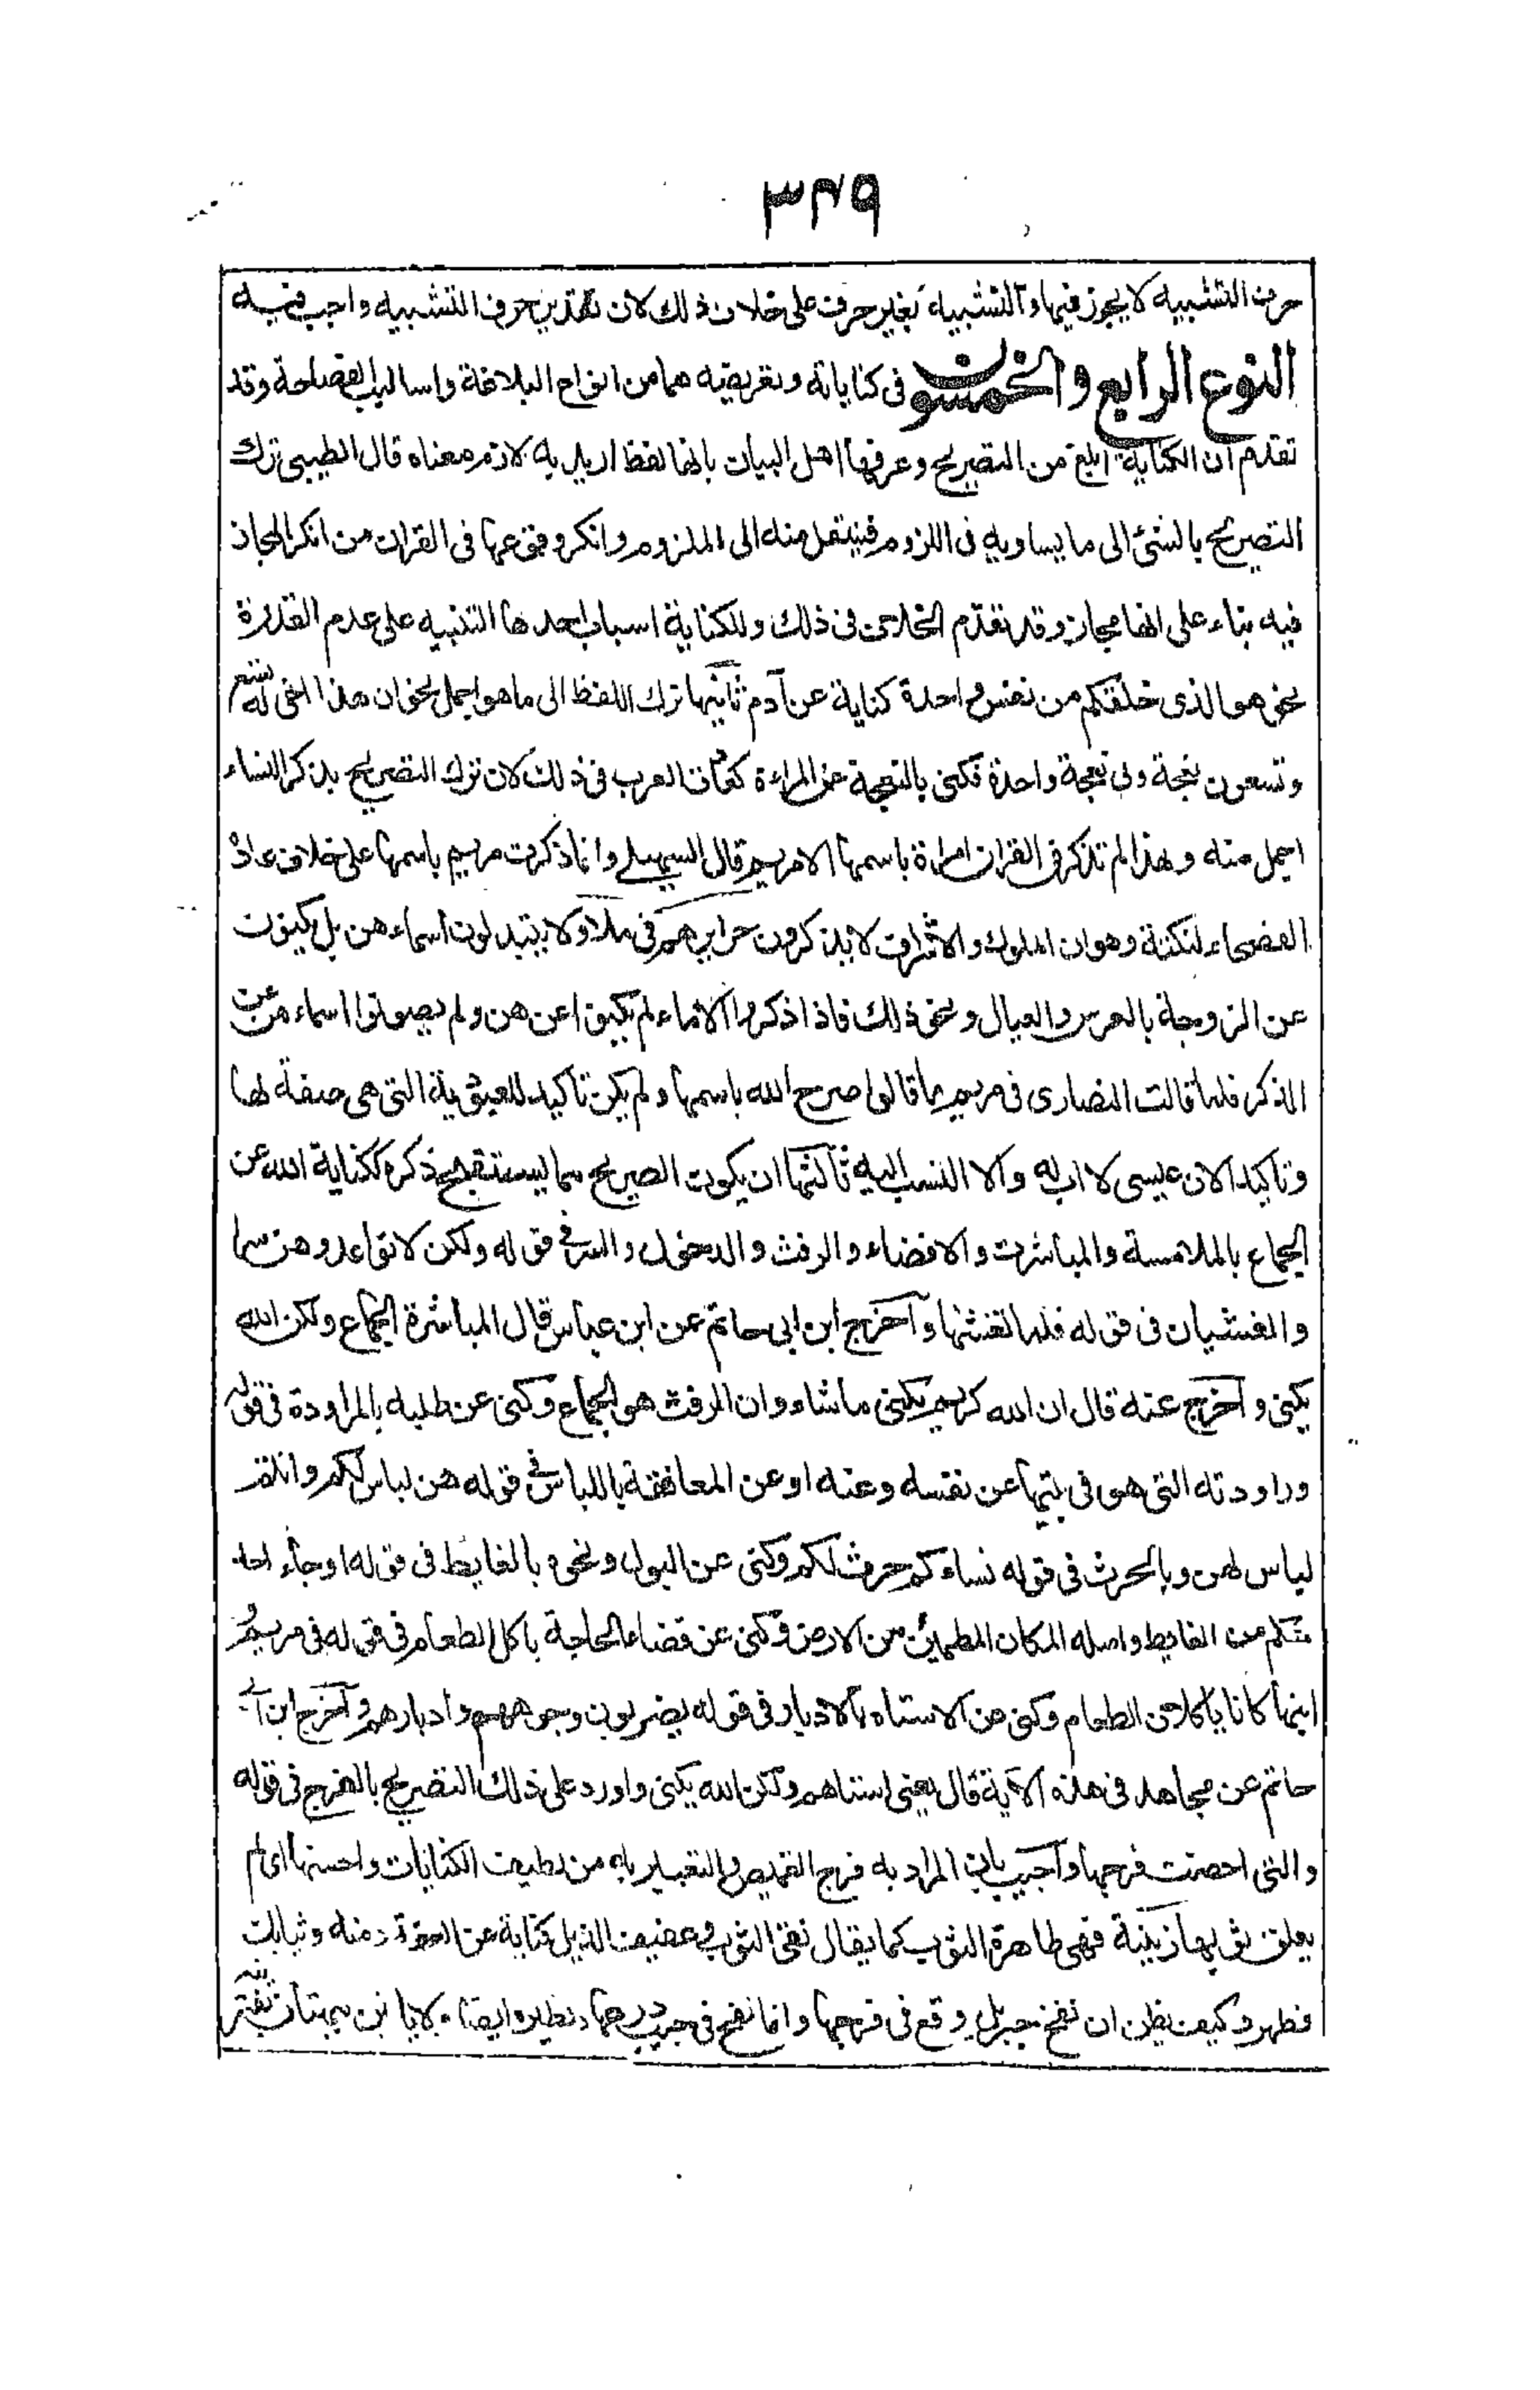 ٣٤٩
حرف التشبيه لا يجوز فيها والتشبيه بغير حرف على خلاف ذلك لان تقدير حرف التشبيه واجب فيه
النوع الرابع والخمسون فى كناياته وتعريضه هما من انواع البلاغة واساليب الفصاحة وقد
تقدم ان الكناية ابلغ من التصريح وعرفها اهل البيان بانها لفظ اريد به لازم معناه قال الطيبى ترك
التصريح بالشئ الى ما يساويه فى اللزوم فينتقل منه الى الملزوم وانكر وقوعها فى القران من انكر المجاز
فيه بناء على انها مجاز وقد تقدم الخلاف فى ذلك وللكناية اسباب احدها التنبيه على عدم القدرة
نحو هو الذى خلقكم من نفس واحدة كناية عن آدم ثانيها ترك اللفظ الى ما هو اجمل نحو ان هذا اخى له تسع
وتسعون نعجة ولى نعجة واحدة فكنى بالنعجة عن المراءة كعادة العرب فى ذلك لان ترك التصريح بذكر النساء
اجمل منه ولهذا لم تذكر فى القران امراة باسمها الا مريم قال السهيلے وانما ذكرت مريم باسمها على خلاف عادة
الفصحاء لنكتة وهو ان الملوك والاشراف لا يذكرون حرايرهم فى ملاء ولا يبتذلون اسماءهن بل يكنون
عن الزوجة بالعرس والعيال ونحو ذلك فاذا ذكروا الاماء لم يكنوا عنهن ولم يصونوا اسماءهن عن
الذكر فلما قالت النصارى فى مريم ما قالوا صرح الله باسمها ولم يكن تاكيد للعبودية التى هى صفة لها
وتاكيدا لان عيسى لا اب له والا لنسب اليه ثالثها ان يكون الصريح مما يستقبح ذكره ككناية الله عن
الجماع بالملامسة والمباشرت والافضاء والرفث والدخول والسر فى قوله ولكن لا تواعدوهن سرا
والغشيان فى قوله فلما تغشها واخرج ابن ابى حاتم عن ابن عباس قال المباشرة الجماع ولكن الله
يكنى واخرج عنه قال ان الله كريم يكنى ما شاء وان الرفث هو الجماع وكنى عن طلبه بالمراودة فى قوله
وراودته التى هو فى بيتها عن نفسه وعنه او عن المعانقة باللباس فى قوله هن لباس لكم وانتم
لباس لهن وبالحرث فى قوله نساءكم حرث لكم وكنى عن البول ونحوه بالغايط فى قوله او جاء احد
منكم من الغايط واصله المكان المطمئن من الارض وكنى عن قضاء الحاجة باكل الطعام فى قوله فى مريم و
ابنها كانا ياكلان الطعام وكنى عن الاستاه بالادبار فى قوله يضربون وجوههم وادبارهم واخرج ابن ابى
حاتم عن مجاهد فى هذه الآية قال يعنى استاههم ولكن الله يكنى واورد على ذلك التصريح بالفرج فى قوله
والتى احصنت فرجها واجيب بان المراد به فرج القميص والتعبير به من لطيف الكنايات واحسنها اى لم
يعلق ثوبها بريبة فهى طاهرة الثوب كما يقال نقى الثوب وعفيف الذيل كناية عن العفة ومنه وثيابك
فطهر وكيف يظن ان نفخ جبريل وقع فى فرجها وانما نفخ فى جيب درعها ونظيره ايضا ولا ياتين ببهتان يفترينه